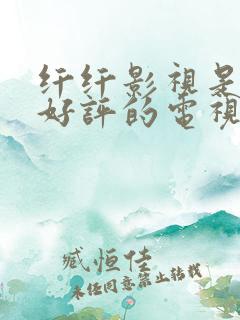 纤纤影視是
好評的電視
臧恒佳
未经同意禁止转载